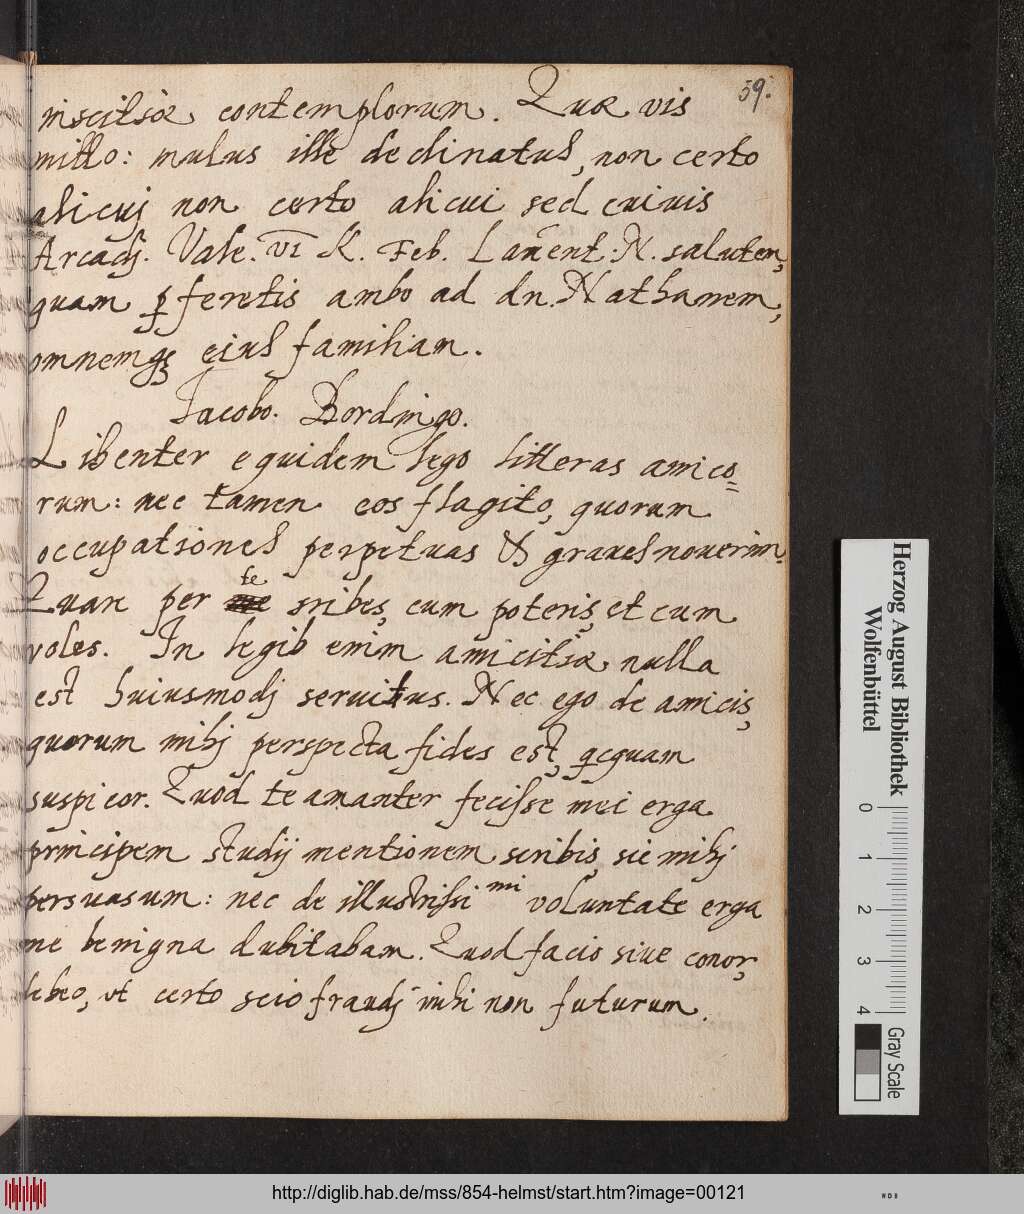 59.
inscitiæ contemplorum. Quæ vis
mitto: mulus ille declinatus, non certo
alicuj non certo alicui sed cuivis
Arcadj. Vale. VI K. Feb. Laurent: N. salutem,
quam pferetis ambo ad dn. Nathanem,
omnemq; eius familiam.
Jacobo. Bordingo.
Libenter equidem lego litteras amico=
rum: nec tamen eos flagito, quorum
occupationes perpetuas & graues nouerim.
te
Quare per sribes, cum poteris, et cum
voles. In legib enim amicitiæ nulla
est huiusmodj seruitus. Nec ego de amicis,
quorum mihj perspecta fides est, qcquam
suspicor. Quod te amanter fecisse mei erga
principem studij mentionem scribis, sic mihj
persuasum: nec de illustrissimi voluntate erga
me benigna dubitabam. Quod facio siue conor,
debeo, vt certo scio fraudj mihi non futurum.
Herzog August Bibliothek
Wolfenbüttel
0 1 2 3 4
Gray Scale
http://diglib.hab.de/mss/854-helmst/start.htm?image=00121